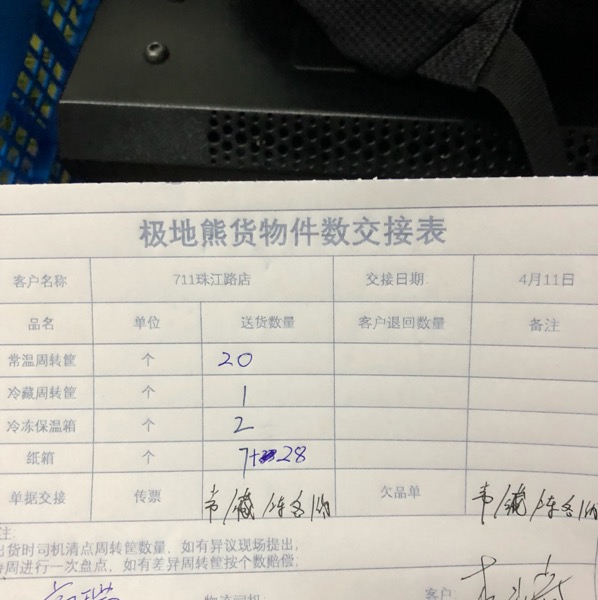 极地熊货物件数交接表
客户名称 711珠江路店 交接日期 4月11日
品名 单位 送货数量 客户退回数量 备注
常温周转筐 个 20
冷藏周转筐 个 1
冷冻保温箱 个 2
纸箱 个 7+ 28
单据交接 传票 常/藏/冻各1份 欠品单 常/藏/冻各1份
注:
出货时司机清点周转筐数量,如有异议现场提出,
每周进行一次盘点,如有差异周转筐按个数赔偿,
物流司机: 客户: